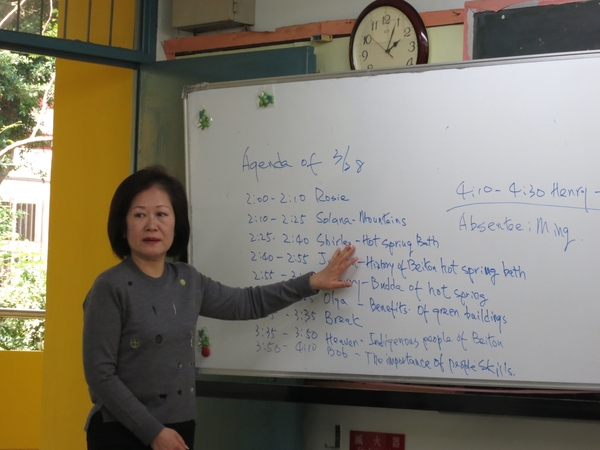 Agenda of 3/28
2:00-2:10 Rosie
2:10-2:25 Solana-Mountains
2:25-2:40 Shirley-Hot spring Bath
2:40-2:55 J -History of Beiton hot spring bath
2:55-2: -Budda of hot spring
Olga - Benefits of green buildings
-3:35 Break
3:35-3:50 Heaven-Indigenous people of Beiton
3:50-4:10 Bob-The importance of people skills.
4:10-4:30 Henry-
Absentee: Ming
滅火器